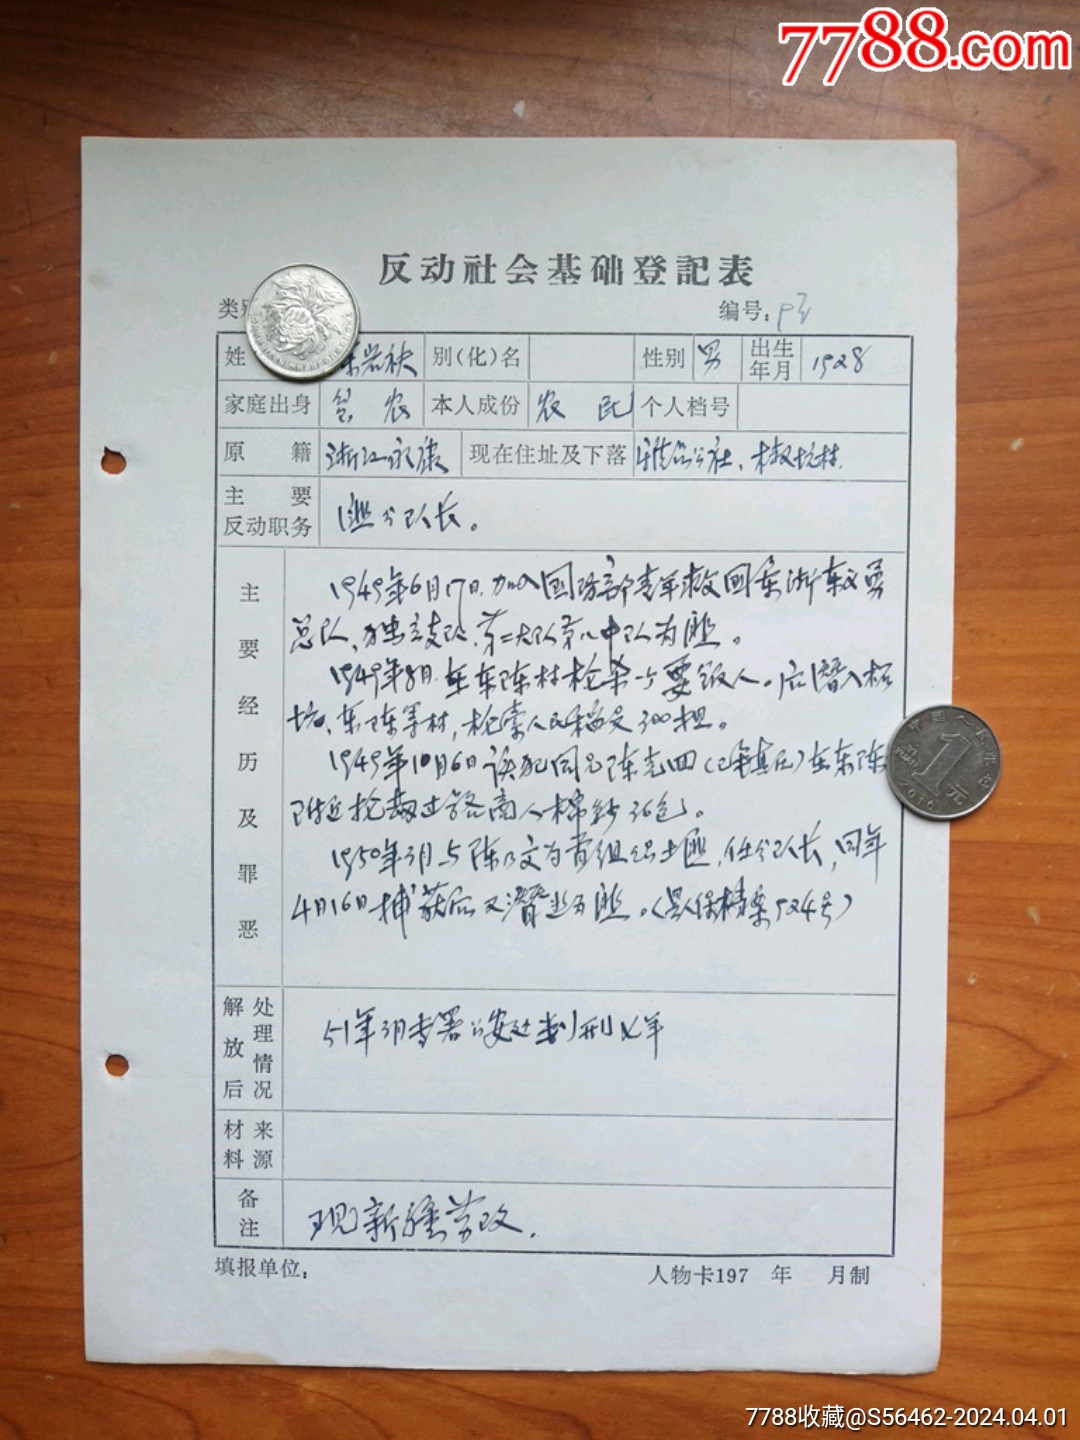 7788.com
反动社会基础登記表
类 编号：
姓 岩袂 别(化)名 性别 男 出生年月 1928
家庭出身 贫农 本人成份 农民 个人档号
原籍 浙江永康 现在住址及下落 公社、坑村.
主要反动职务 匪分队长。
主要经历及罪恶
1949年6月17日.加入国防部青年救国团浙东义勇
总队、独立支队、第二大队第八中队为匪。
1949年8月.在东陈村枪杀一个要饭人。后潜入
坑、东陈等村，抢索人民稻谷300担。
1949年10月6日该犯同陈志四（已镇压）在东陈
附近抢劫过路商人棉纱36包。
1950年3月与陈文为首组织土匪，任分队长，同年
4月16日捕获后又潜逃为匪。（县人保档案524号）
解放后处理情况
51年3月专署公安处判刑七年
材料来源
备注
现新疆劳改.
填报单位： 人物卡197 年 月制
中国人民银行
1元
YI YUAN
2016
7788收藏@S56462-2024.04.01